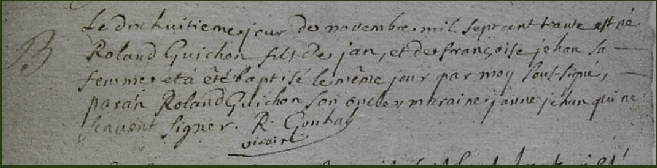 B
Le dixhuitieme jour de novembre mil sept cent trante est né
Roland Guichon fils de jan, et de françoise jehan sa
femme et a été baptisé le même jour par moy soussigné,
parain Roland Guichon son oncle maraine janne jehan qui ne
scavent signer. R. Gonhay
vicaire